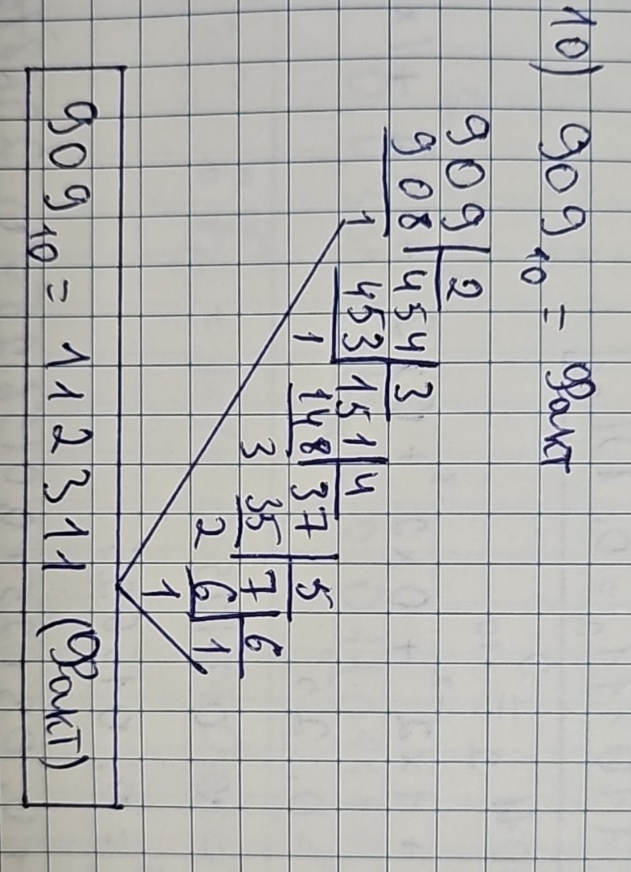 10) 909₁₀ = Факт
909 | 2
908 | 454 | 3
1 453 | 151 | 4
1 148 | 37 | 5
3 35 | 7 | 6
2 6 | 1
1
909₁₀ = 112311 (Факт)